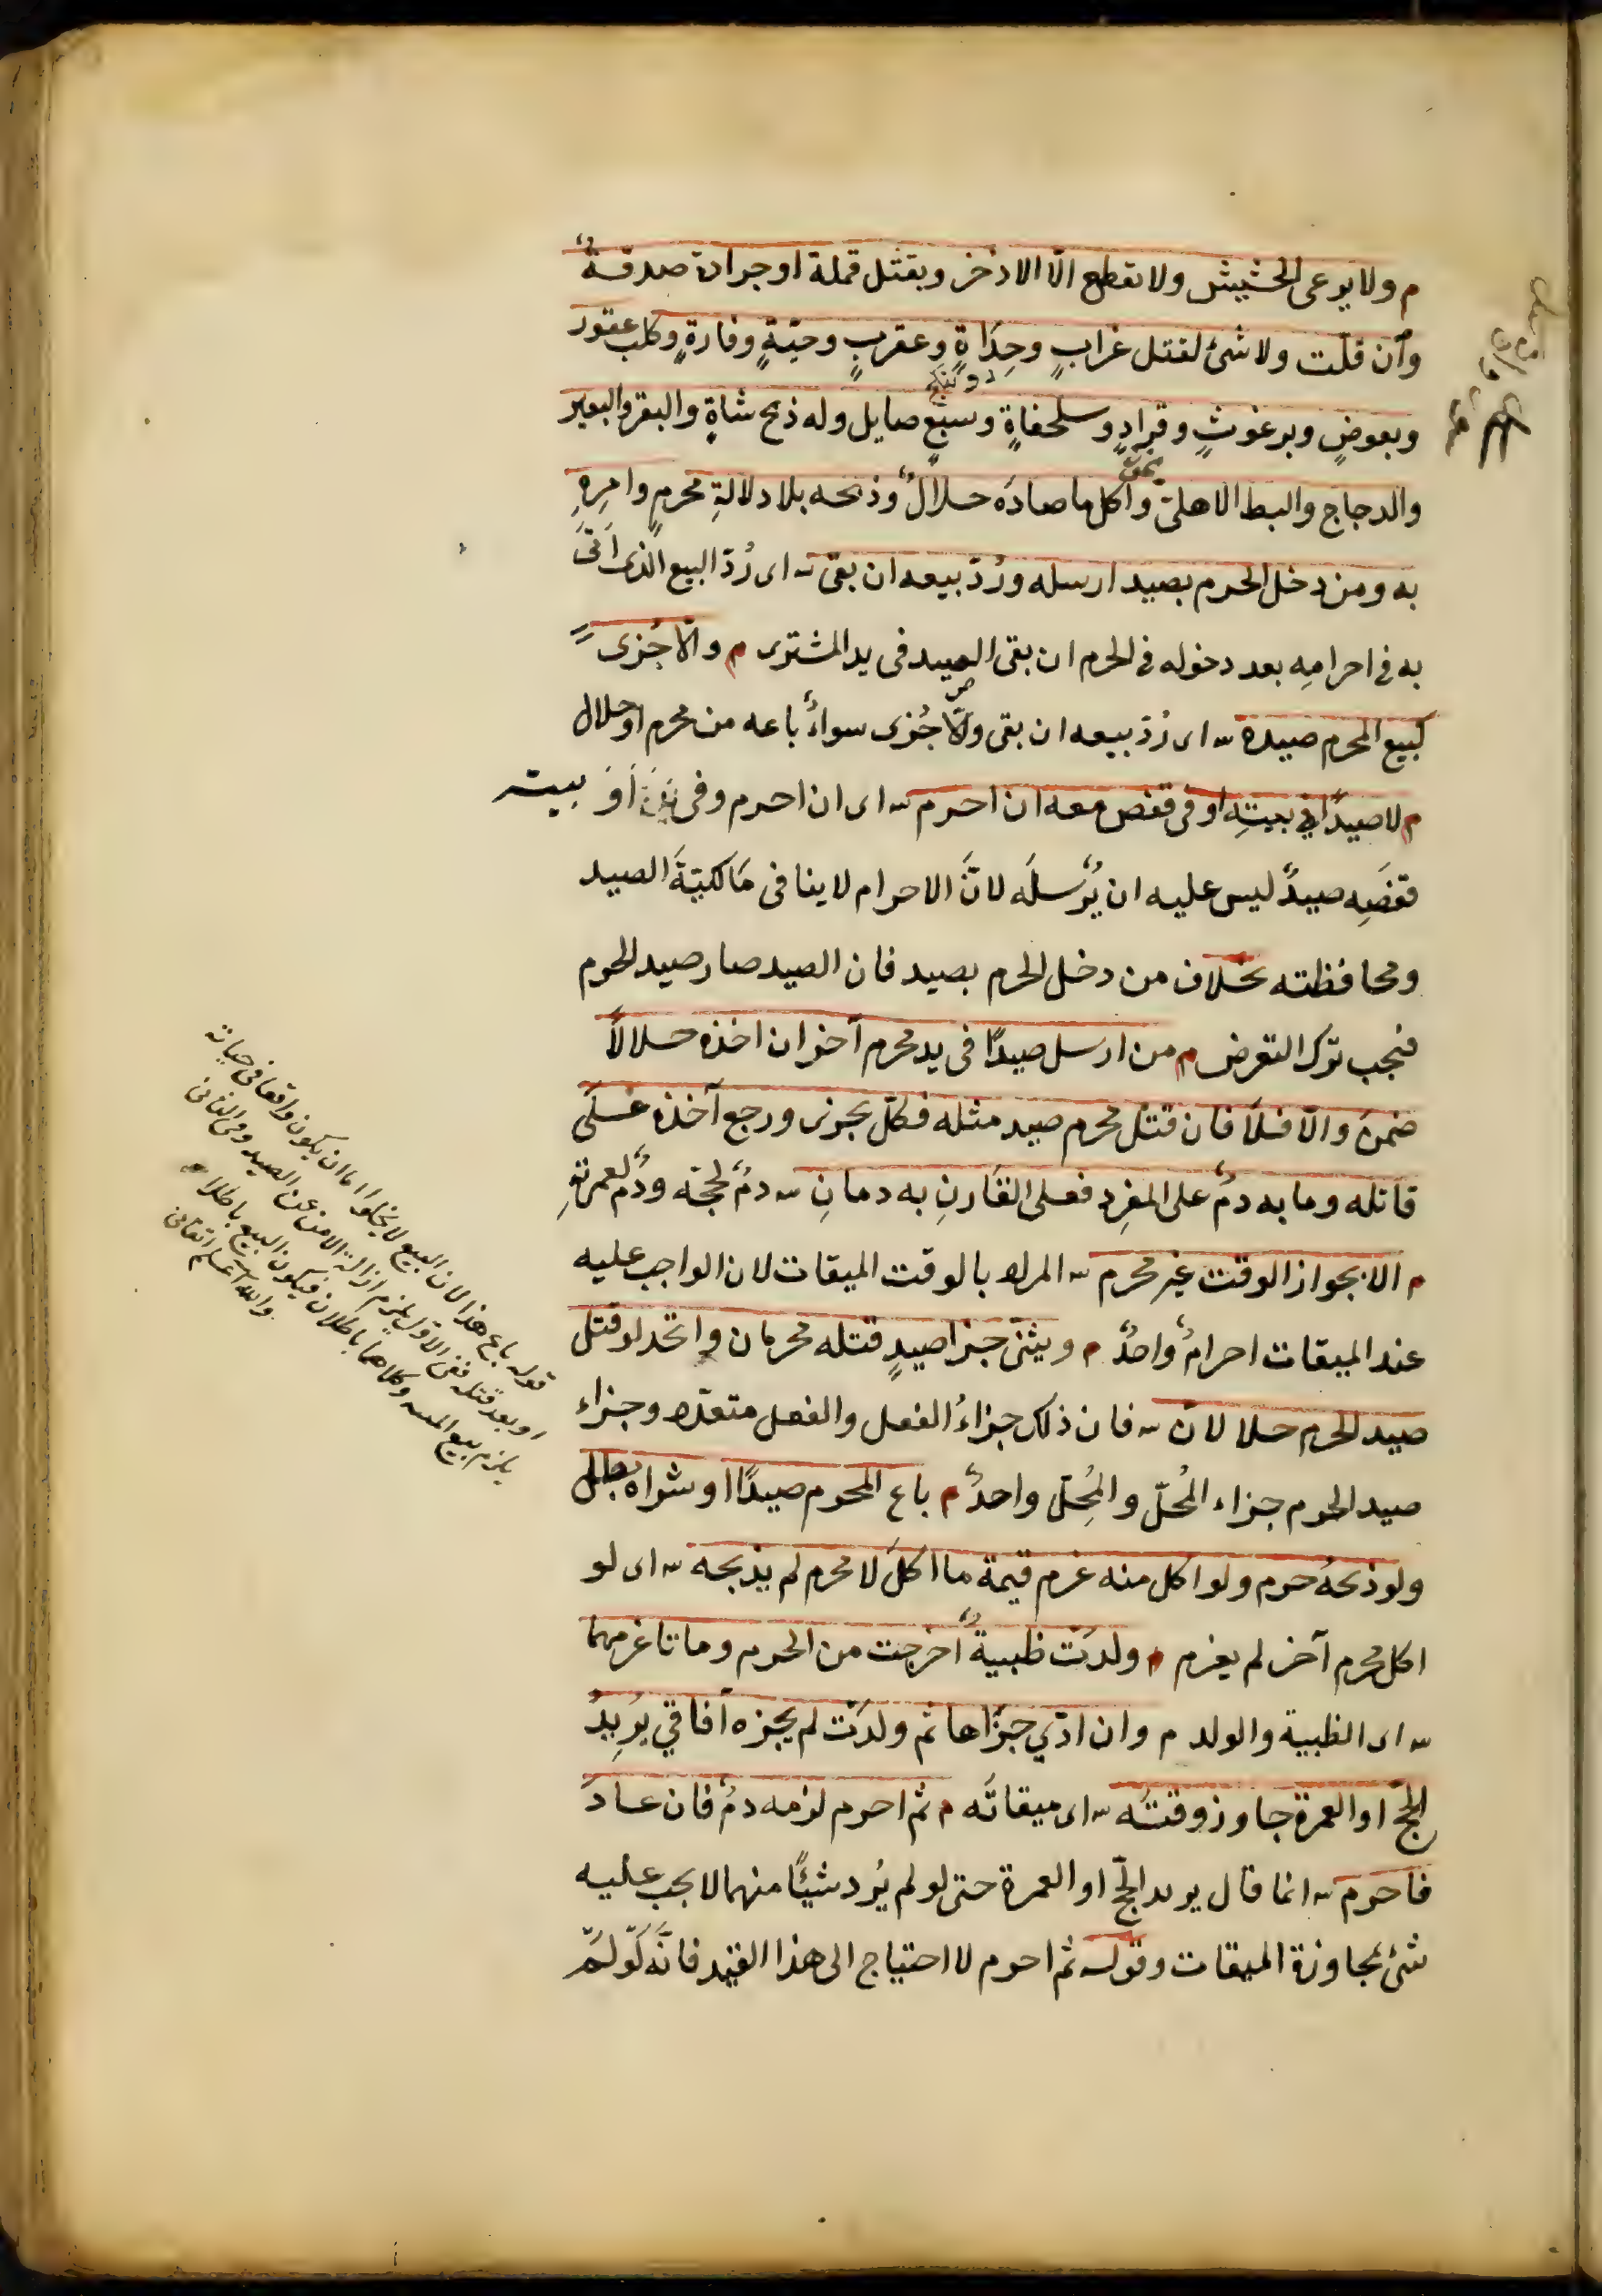 م ولا يرعى الحشيش ولا تقطع الّا الاذخر وبقتل قملة او جرادة صدقةٌ
وأن قلّت ولا شئ لقتل غرابٍ وحِدَاةٍ وعقربٍ وحيّةٍ وفارةٍ وكلب عقور
وبعوضٍ وبرغوثٍ وقرادٍ وسلحفاةٍ وسبعٍ صايل وله ذبح شاةٍ والبقر والبعير
والدجاج والبط الاهلىّ واكل ما صادَه حلالٌ وذبحه بلا دلالةِ محرمٍ وامرِهِ
به ومن دخل الحرم بصيد ارسله ورُدّ بيعه ان بقى ؎ اى رُدّ البيع الذى اتى
به فى احرامِه بعد دخوله فى الحرم ان بقى الصيد فى يد المشترى م والّا جُزى
كبيع المحرم صيده ؎ اى رُدّ بيعه ان بقى والّا جُزى سواءٌ باعه من محرم او حلال
م لا صيدًا فى بيتِه او فى قفص معه ان احرم ؎ اى ان احرم وفى بيته أو
قفصَهِ صيدٌ ليس عليه ان يُرْسلَه لانَّ الاحرام لا ينافى مَالكيّةَ الصيد
ومحافظته بخلاف من دخل الحرم بصيد فان الصيد صار صيد الحرم
فيجب ترك التعرض م من ارسل صيدًا فى يد محرم آخر ان اخذه حلالاً
ضمن والّا فلا فان قتل محرم صيد مثله فكلّ يجزى ورجع آخذه على
قاتله وما به دمٌ على المفرِد فعلى القَارنِ به دمانِ ؎ دمٌ لحجّه ودمٌ لعمرتهِ
م الا بجواز الوقت غير محرم ؎ المراد بالوقت الميقات لان الواجب عليه
عند الميقات احرامٌ واحدٌ م ويثنّى جزا صيدٍ قتله محرمان واتحد لو قتل
صيد الحرم حلالان ؎ فان ذلك جزاءُ الفعل والفعل متعدّد وجزاء
صيد الحرم جزاء المُحلّ والمُحِلّ واحدٌ م باع المحرم صيدًا او شراه بطل
ولو ذبحهُ حرم ولو اكل منه غرم قيمة ما اكلَ لا محرم لم يذبحه ؎ اى لو
اكل محرم آخر لم يغرم م ولدَت ظبيةٌ أخرجت من الحرم وماتا غرمهما
؎ اى الظبية والولد م وان ادّى جزَاها ثم ولدَت لم يجزه آفاقي يُرِيدُ
الحجّ او العمرة جاوز وقتَه ؎ اى ميقاتَه م ثم احرم لزمه دمٌ فان عادَ
فاحرم ؎ انما قال يريد الحجّ او العمرة حتى لو لم يُرد شيئًا منهما لا يجب عليه
شئ بمجاوزة الميقات وقوله ثم احرم لا احتياج الى هذا القيد فانّه لَو لَمْ
قوله باع هذا لان البيع لا يخلوا اما ان يكون واقعا فى حياته
او بعد قتله ففى الاول يلزم ازالة الامن عن الصيد وفى الثانى
يلزم بيع الميتة وكلاهما باطلان فيكون البيع باطلا
والله اعلم اتقانى